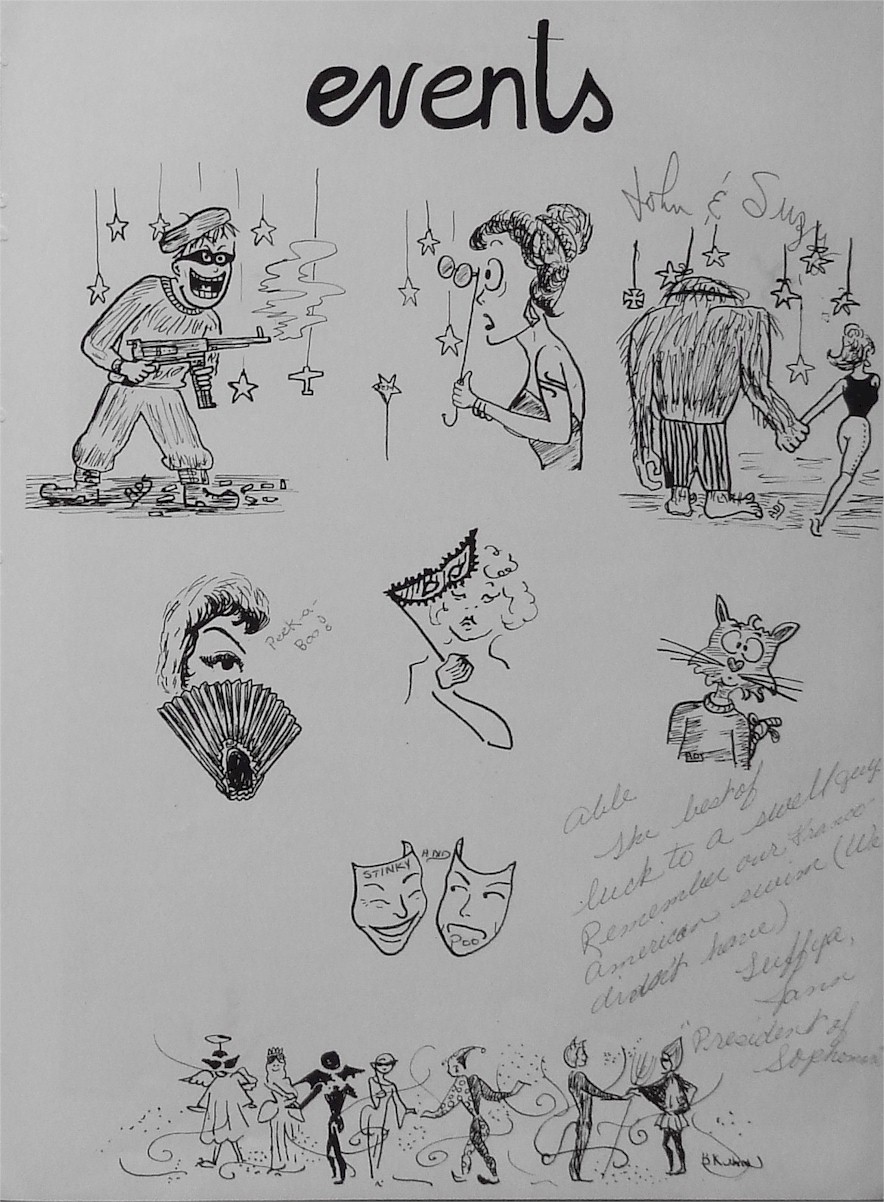 events
John & Suzy
Peek-a-
Boo
STINKY
AND
POO
Able
The best of
luck to a swell guy
Remember our Franco-
American swim (We
didn't have)
"President of